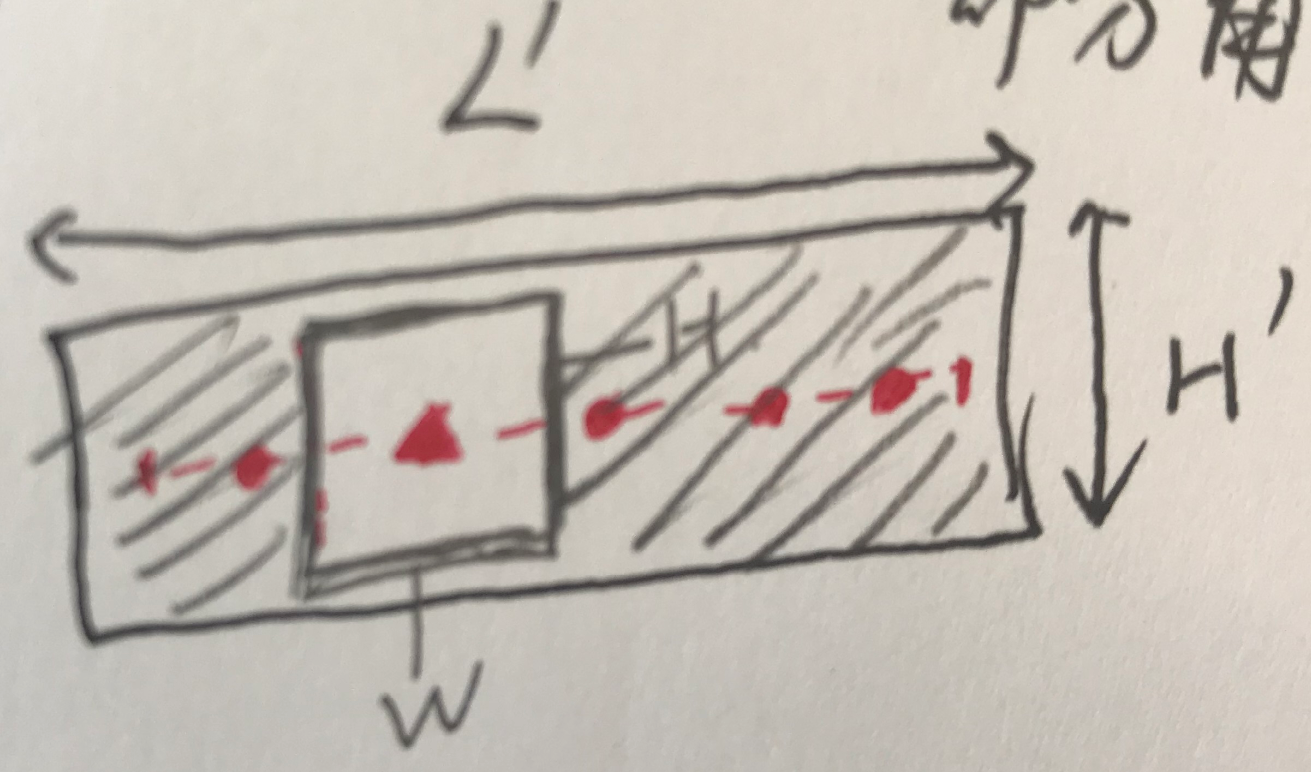 L'
H
H'
W